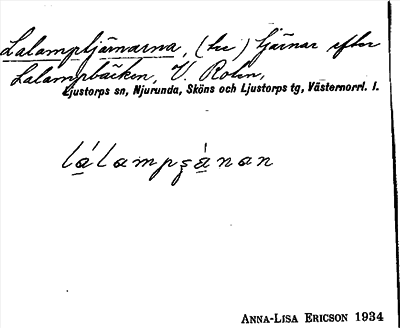 Lalamptjärnarna, (tre) tjärnar efter
Lalampbäcken, V. Rolin,
Ljustorps sn, Njurunda, Sköns och Ljustorps tg, Västernorrl. l.
lálampʂànan
ANNA-LISA ERICSON 1934